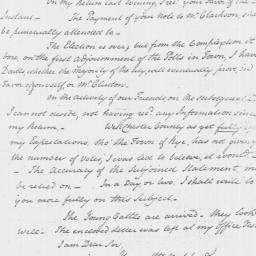 On my return last evening I rec.d your Favor of the
Instant – The Payment of your Note to Mr. Clarkson, sha
be punctually attended to –
The Election is over, but from the Complexion it
bore, on the first adjournment of the Polls in Town, I hav
Doubts, whether the Majority of the City, will eventually prove, in
Favor of yourself or Mr. Clinton.
On the activity of our Friends, on the subsequent D
I cannot decide, not having rec.d any Information sinc
my Return – WestChester County as yet fully
my Expectations, tho' the Town of Rye, has not given
the number of Votes, I was led to believe, it would. –
– The Accuracy of the Subjoined Statement, m
be relied on – In a day or two, I shall write to
you more fully on this Subject –
The Young Cattle are arrived – they look
well – The enclosed letter was left at my Office Yes
I am Dear Sir,